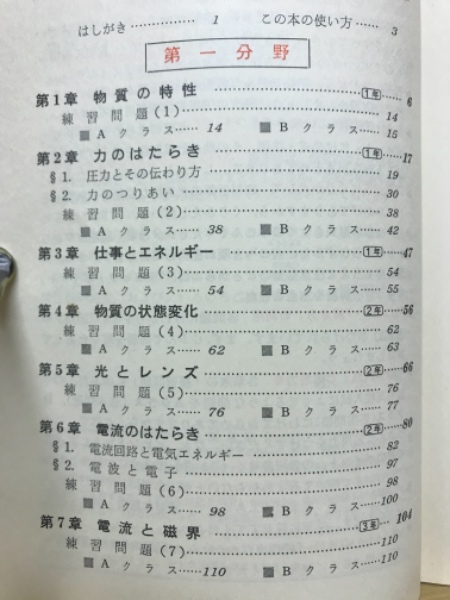 はしがき……………… 1　この本の使い方…… 3
第一分野
第1章 物質の特性………………1年… 6
練習問題(1)……………… 14
■Aクラス…… 14　■Bクラス…… 15
第2章 力のはたらき………………1年…17
§1. 圧力とその伝わり方……………… 19
§2. 力のつりあい……………… 30
練習問題(2)……………… 38
■Aクラス…… 38　■Bクラス…… 42
第3章 仕事とエネルギー………………1年…47
練習問題(3)……………… 54
■Aクラス…… 54　■Bクラス…… 55
第4章 物質の状態変化………………2年…56
練習問題(4)……………… 62
■Aクラス…… 62　■Bクラス…… 63
第5章 光とレンズ………………2年…66
練習問題(5)……………… 76
■Aクラス…… 76　■Bクラス…… 77
第6章 電流のはたらき………………2年…80
§1. 電流回路と電気エネルギー……………… 82
§2. 電波と電子……………… 97
練習問題(6)……………… 98
■Aクラス…… 98　■Bクラス……100
第7章 電流と磁界………………3年…104
練習問題(7)………………110
■Aクラス……110　■Bクラス……110